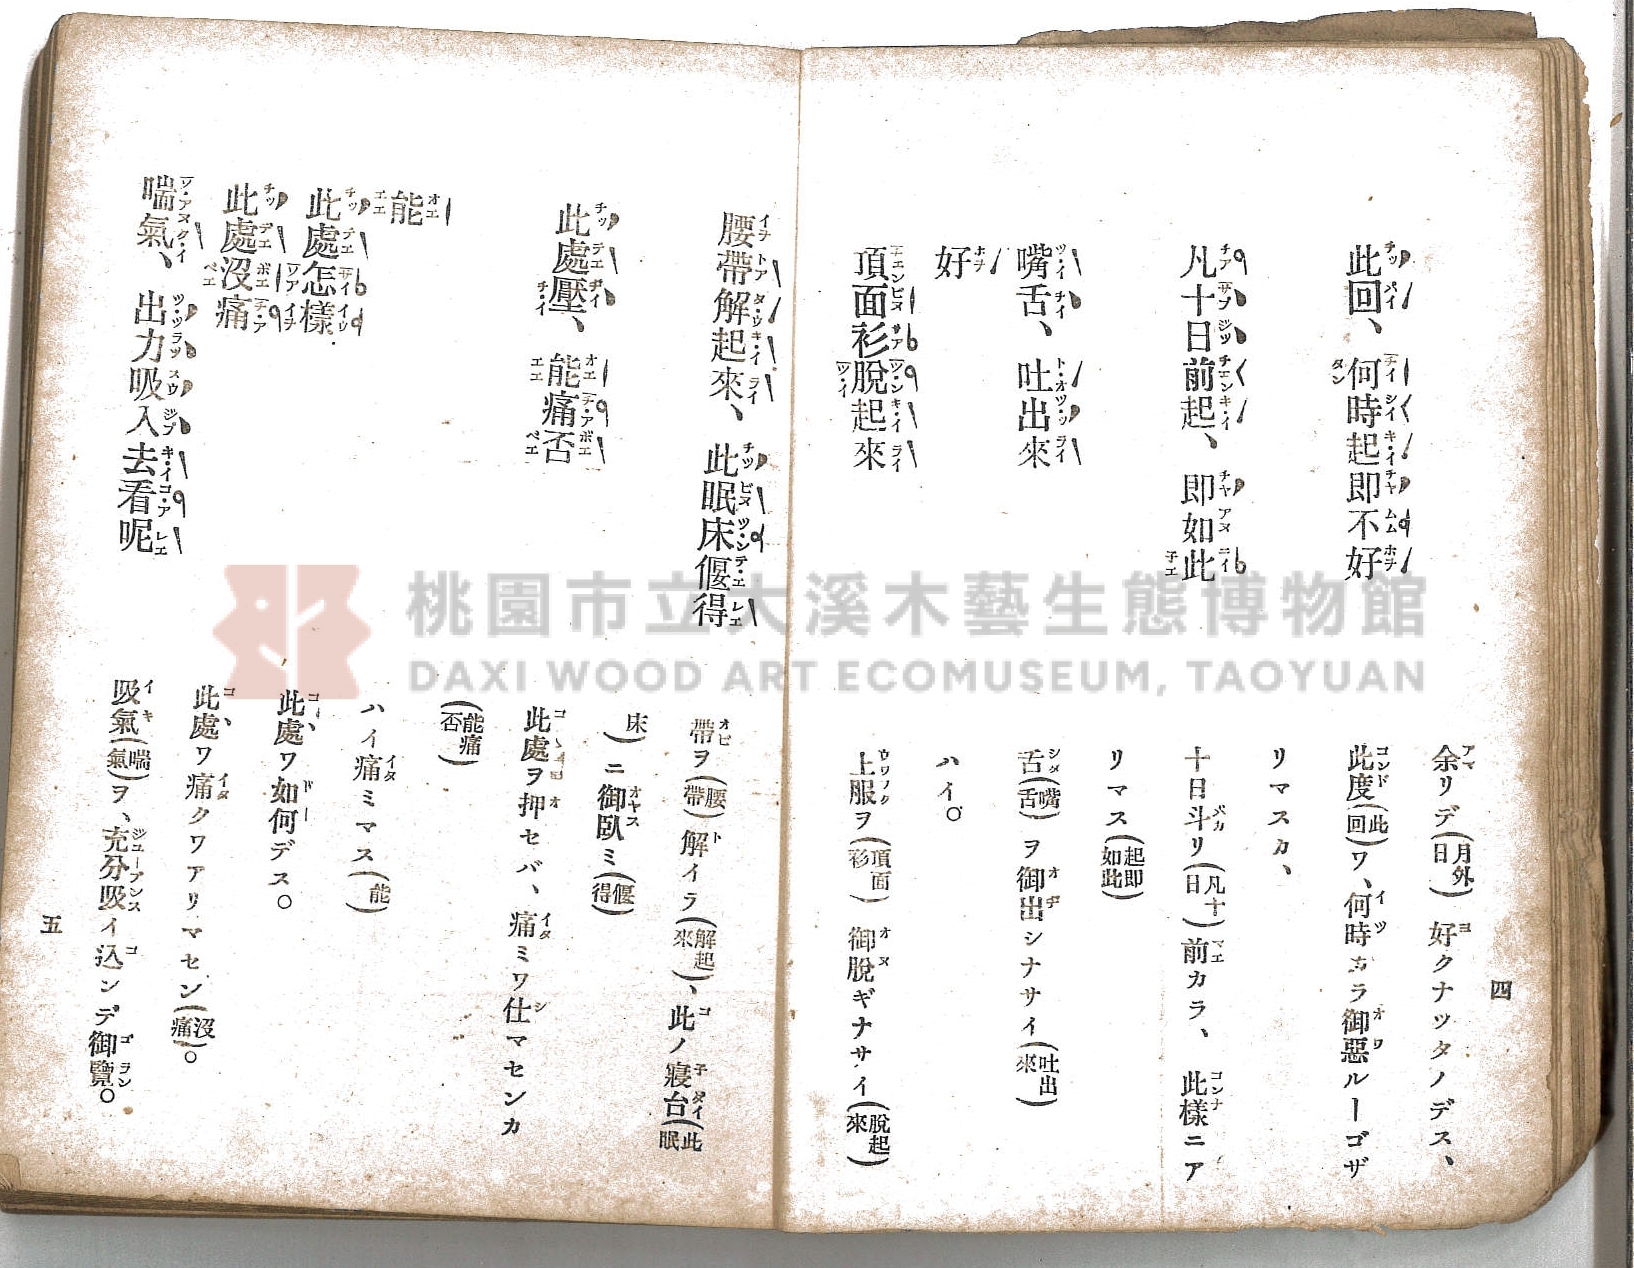 四
余リデ(月外日)好クナッタノデス、
此回、何時起卽不好
此度(此回)ワ、何時カラ御惡ルーゴザ
リマスカ、
凡十日前起、卽如此
十日斗リ(凡十日)前カラ、此樣ニア
リマス(起卽如此)
嘴舌、吐出來
舌(嘴舌)ヲ御出シナサイ(吐出來)
好
ハイ。
頂面衫脫起來
上服ヲ(頂面衫)御脫ギナサイ(脫起來)
腰帶解起來、此眠床偃得
帶ヲ(腰帶)解イラ(解起來)、此ノ寢台(此眠
床)ニ御臥ミ(偃得)
此處壓、能痛否
此處ヲ押セバ、痛ミワ仕マセンカ
(能痛否)
能
ハイ痛ミマス(能)
此處怎樣
此處ワ如何デス。
此處沒痛
此處ワ痛クワアリマセン(沒痛)。
喘氣、出力吸入去看呢
吸氣(喘氣)ヲ、充分吸イ込ンデ御覽。
五
桃園市立大溪木藝生態博物館
DAXI WOOD ART ECOMUSEUM, TAOYUAN